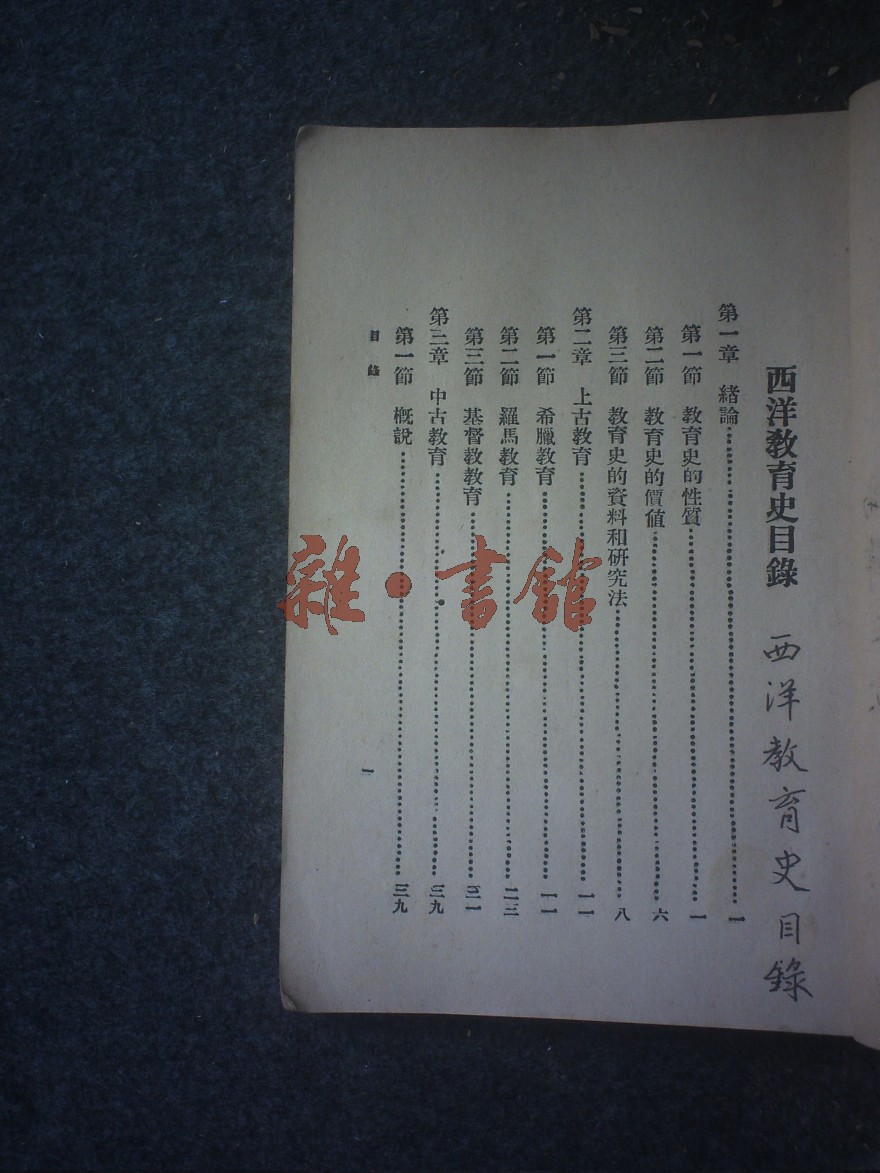 西洋教育史目錄
西洋教育史目錄
第一章 緒論…………一
第一節 教育史的性質…………一
第二節 教育史的價值…………六
第三節 教育史的資料和研究法…………八
第二章 上古教育…………一一
第一節 希臘教育…………一一
第二節 羅馬教育…………二三
第三節 基督教教育…………三一
第三章 中古教育…………三九
第一節 概說…………三九
目錄 一
雜·書館